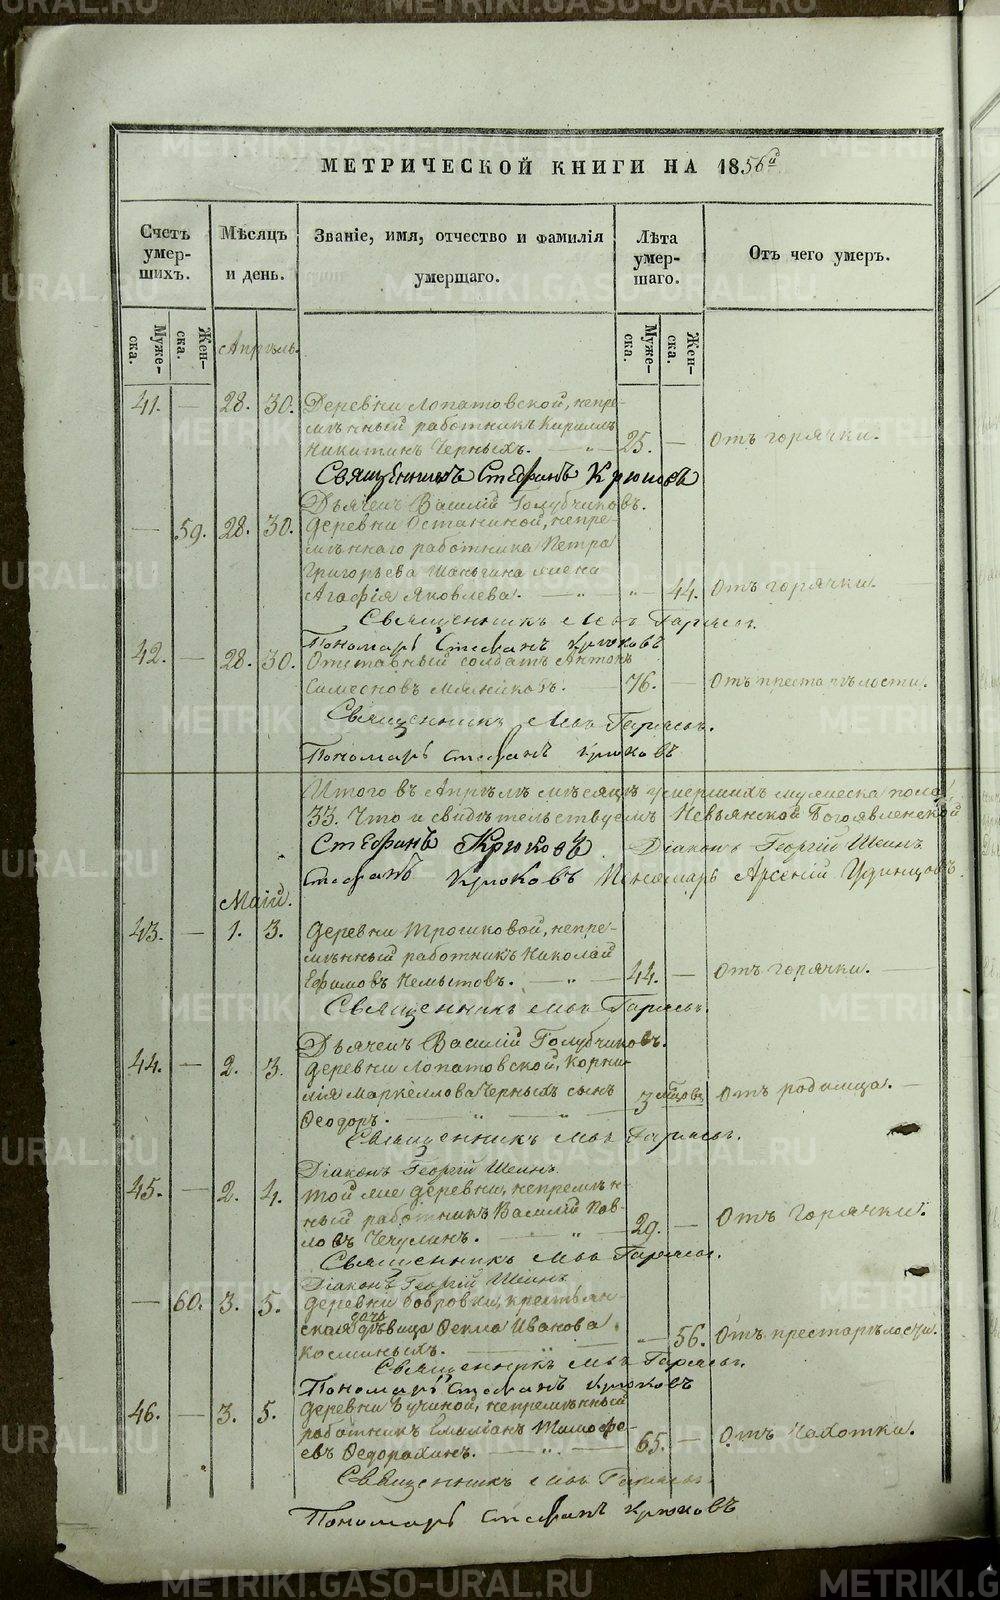 МЕТРИЧЕСКОЙ КНИГИ НА 1856й
Счетъ умер-шихъ.
Мѣсяцъ и день.
Званіе, имя, отчество и фамилія умершаго.
Лѣта умер-шаго.
Отъ чего умеръ.
Муже-ска. Жен-ска. Муже-ска. Жен-ска.
Апрѣль.
41. — 28. 30. Деревни Лопатовской, непре-
мѣнный работникъ Кириллъ
Никитинъ Черныхъ. — 25. — Отъ горячки.
Священникъ Стефанъ Крюковъ
Дьячекъ Василій Голубчиковъ.
— 59. 28. 30. Деревни Останиной, непре-
мѣннаго работника Петра
Григорьева жена
Агафія Яковлева. — 44. Отъ горячки.
Священникъ
Пономарь Стефанъ Крюковъ
42. — 28. 30. Отставный солдатъ Антонъ
Симеоновъ Мяниковъ. 76. — Отъ престарѣлости.
Священникъ
Пономарь Стефанъ Крюковъ
Итого въ Апрѣлѣ мѣсяцѣ умершихъ мужеска пола
33. Что и свидѣтельствуемъ Невьянской Богоявленской
Стефанъ Крюковъ Діаконъ Георгій Шеинъ
Стефанъ Крюковъ Пономарь Арсеній Удинцовъ.
Маій.
43. — 1. 3. Деревни Трошковой, непре-
мѣнный работникъ Николай
Ефимовъ Немытовъ. — 44. — Отъ горячки.
Священникъ
Дьячекъ Василій Голубчиковъ.
44. — 2. 3. Деревни Лопатовской, Корни-
лія Маркеллова Черныхъ сынъ
Ѳеодоръ. 3 мѣсяцовъ Отъ родимца.
Священникъ
Діаконъ Георгій Шеинъ.
45. — 2. 4. Той же деревни, непремѣн-
ный работникъ Василій Пав-
ловъ Чечулинъ. 29. — Отъ горячки.
Священникъ
Діаконъ Георгій Шеинъ.
— 60. 3. 5. Деревни Бобровки, крестьян-
ская дочь дѣвица Ѳекла Иванова
Косминыхъ. — 56. Отъ престарѣлости.
Священникъ
Пономарь Стефанъ Крюковъ
46. — 3. 5. Деревни Бучиной, непремѣнный
работникъ Емиліанъ Тимофе-
евъ Ѳедорахинъ. 65. — Отъ чахотки.
Священникъ
Пономарь Стефанъ Крюковъ
METRIKI.GASO-URAL.RU